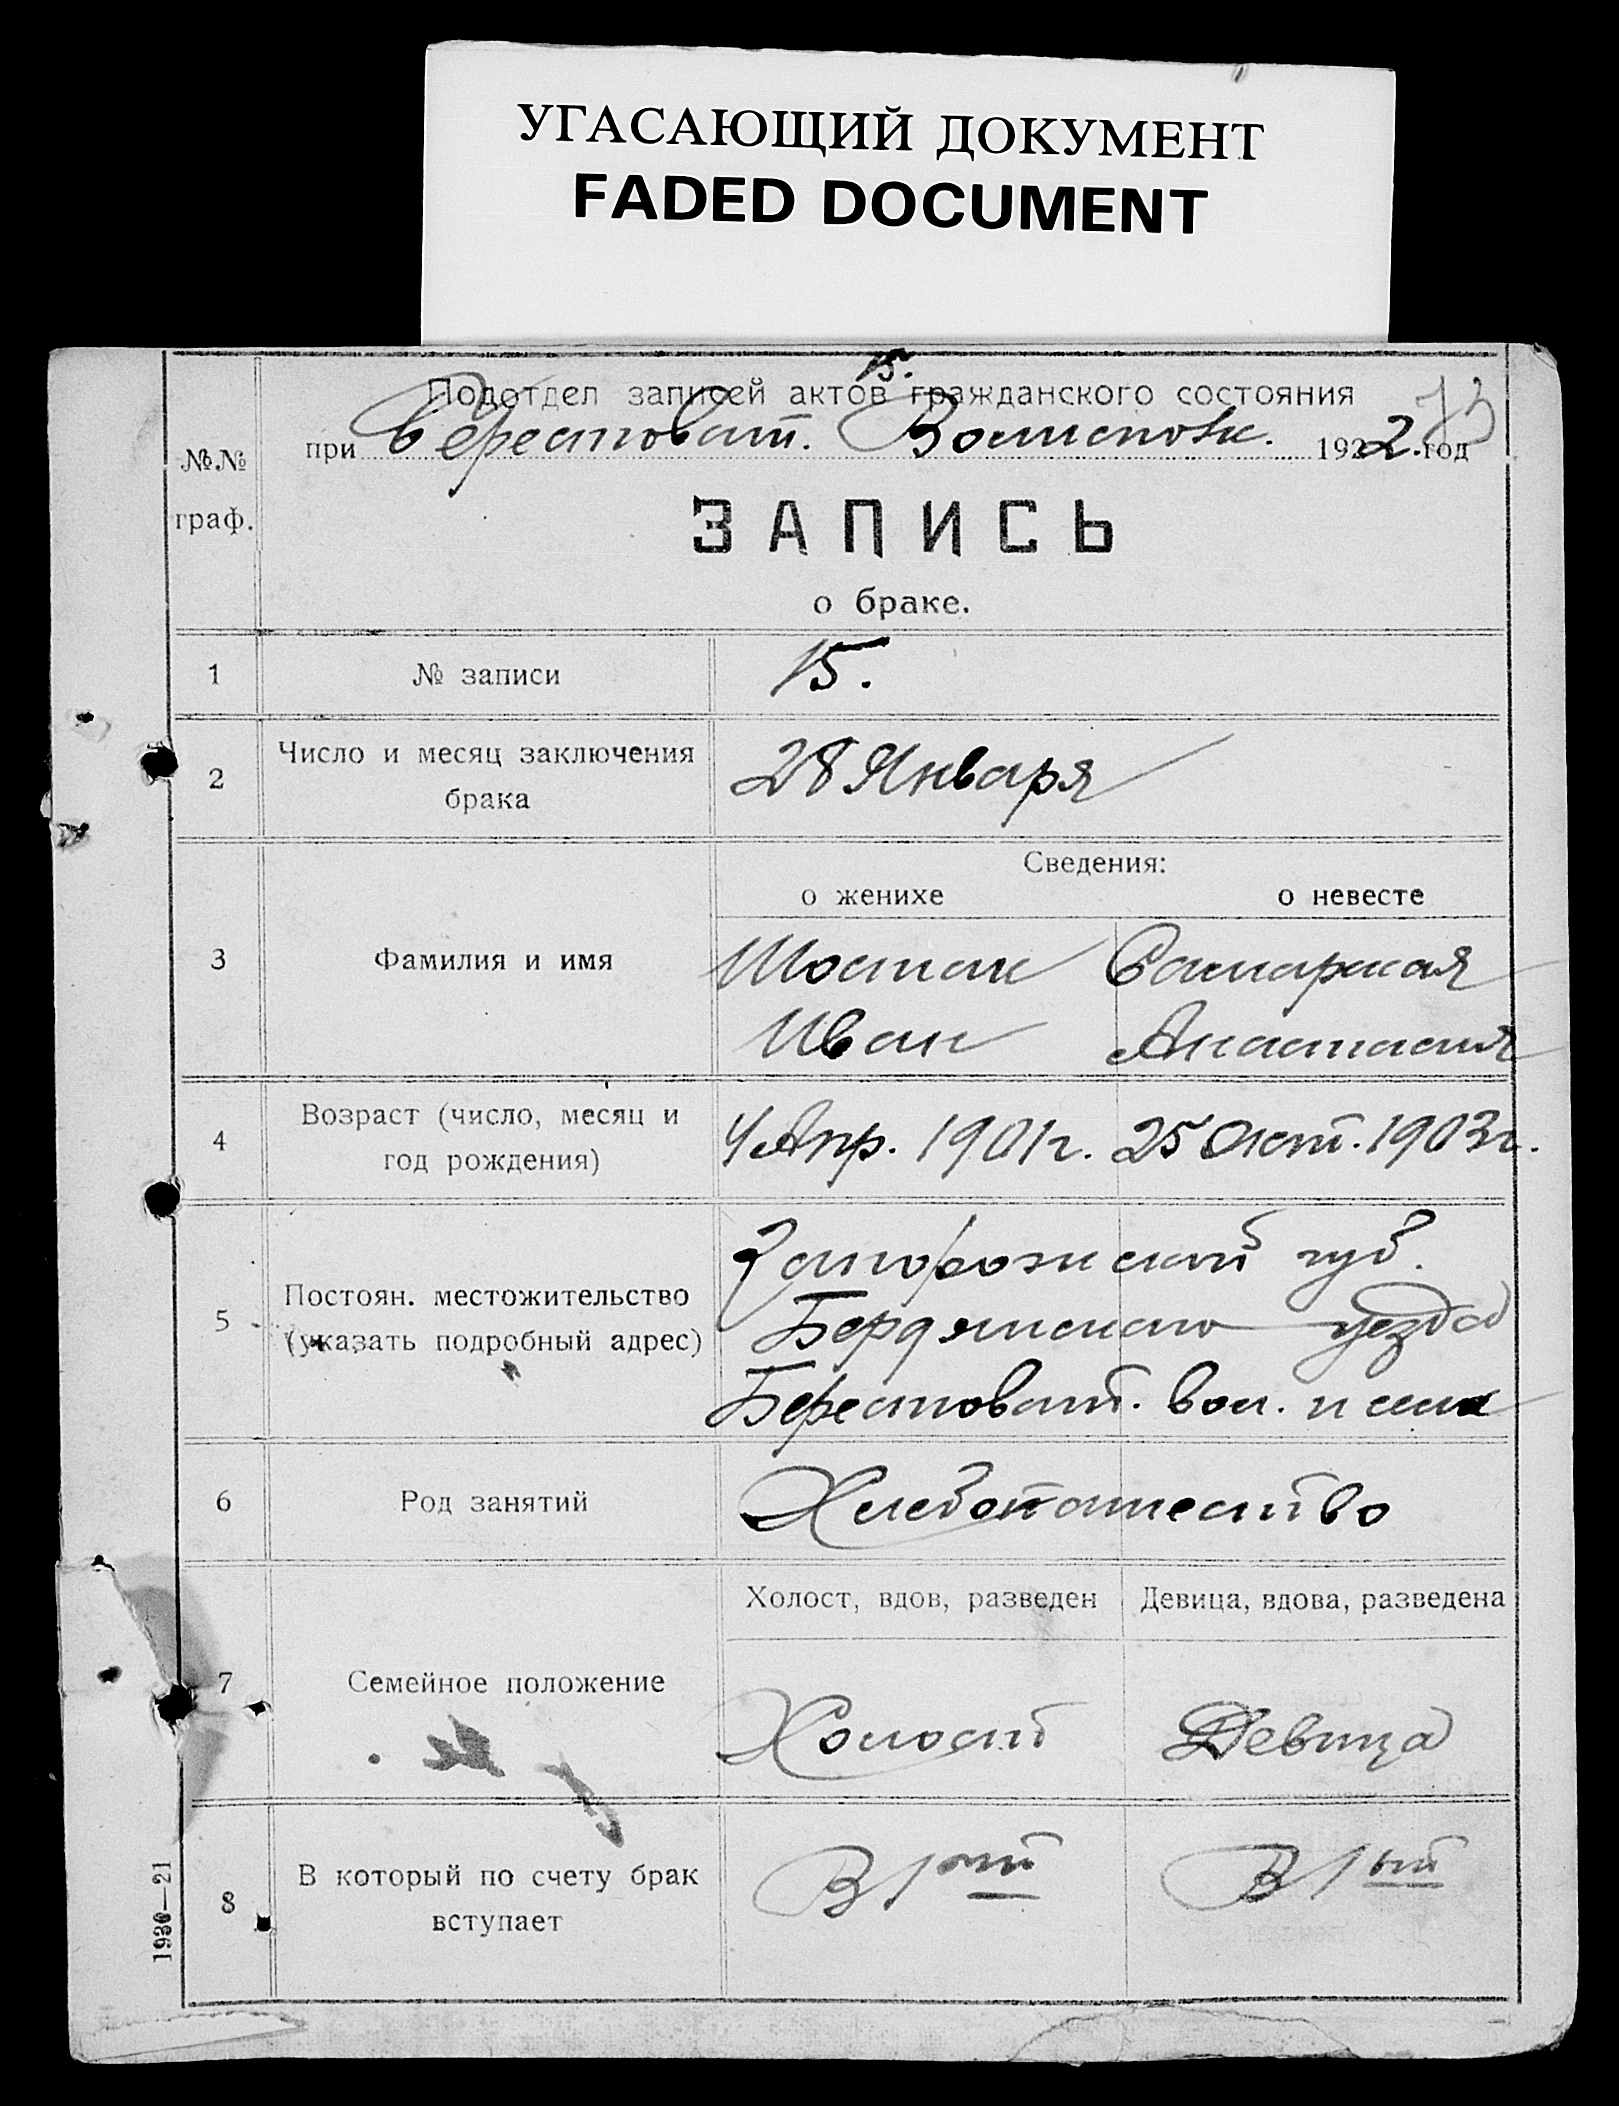 УГАСАЮЩИЙ ДОКУМЕНТ
FADED DOCUMENT
15.
Подотдел записей актов гражданского состояния
73
при Берестоват. Волисполк. 1922. год
№№ граф.
ЗАПИСЬ
о браке.
1 № записи 15.
2 Число и месяц заключения брака 28 Января
Сведения:
о женихе о невесте
3 Фамилия и имя Шостак Самарская
Иван Анастасия
4 Возраст (число, месяц и год рождения) 4 Апр. 1901 г. 25 Окт. 1903 г.
5 Постоян. местожительство (указать подробный адрес) Запорожской губ.
Бердянского уезда
Берестоват. вол. и села
6 Род занятий Хлебопашество
Холост, вдов, разведен Девица, вдова, разведена
7 Семейное положение Холост Девица
8 В который по счету брак вступает В 1 ый В 1 ый
1930—21